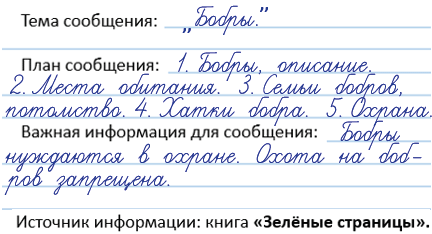 Тема сообщения: „Бобры.”
План сообщения: 1. Бобры, описание.
2. Места обитания. 3. Семьи бобров,
потомство. 4. Хатки бобра. 5. Охрана.
Важная информация для сообщения: Бобры
нуждаются в охране. Охота на боб-
ров запрещена.
Источник информации: книга «Зелёные страницы».